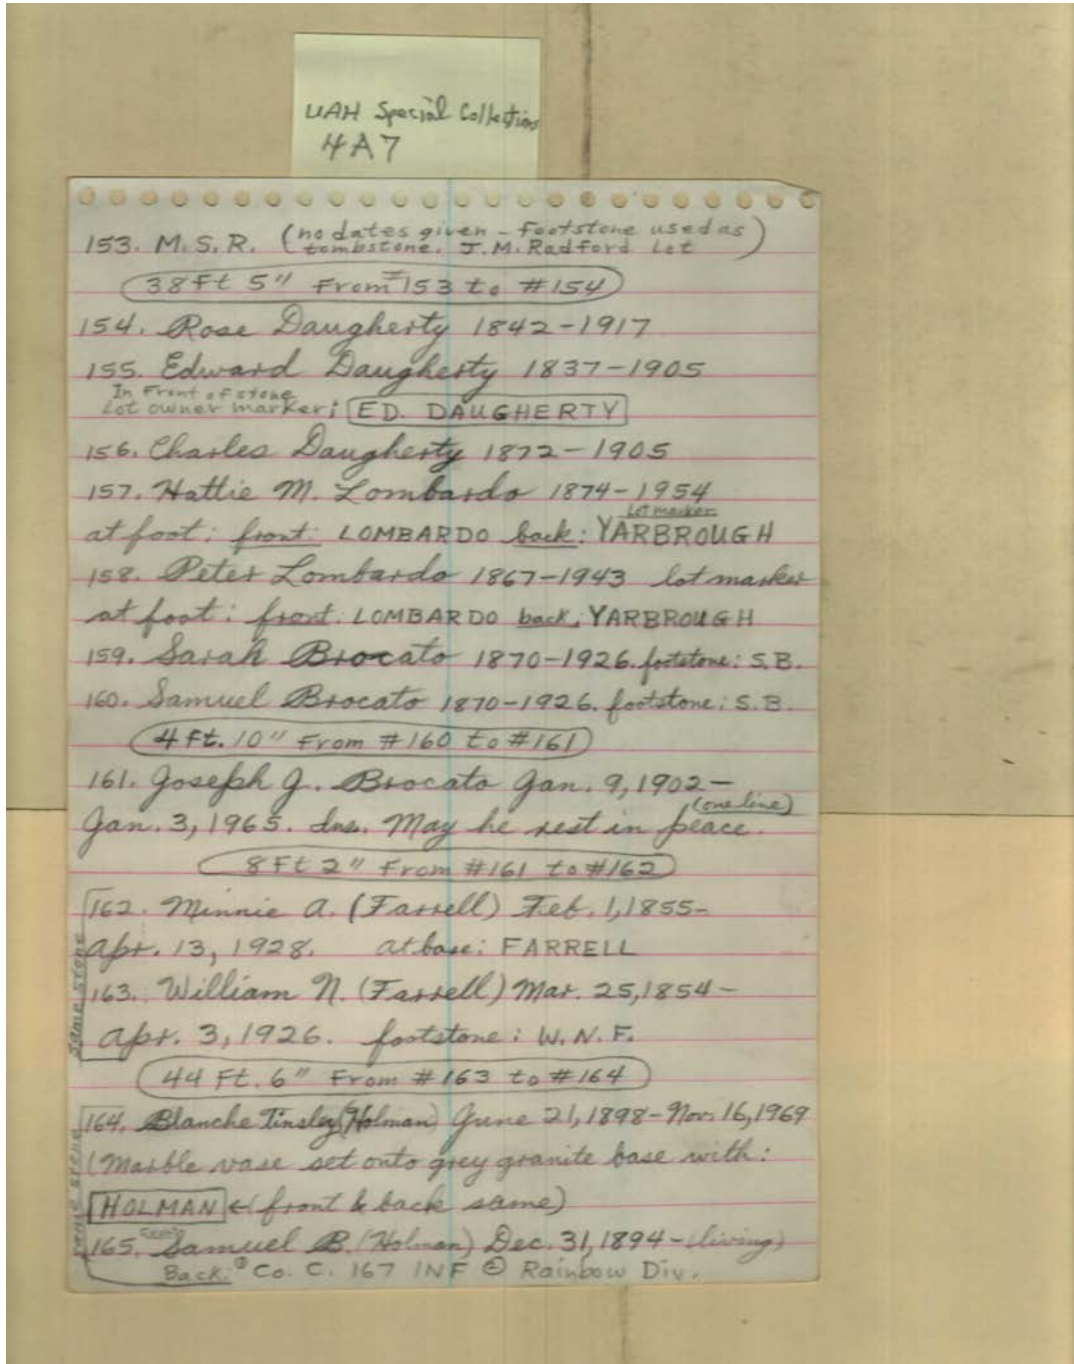 UAH Special Collections
4A7
153. M.S.R. (no dates given - Footstone used as
tombstone. J.M. Radford Lot)
38Ft 5" From #153 to #154
154. Rose Daugherty 1842-1917
155. Edward Daugherty 1837-1905
In Front of stone
Lot owner marker: ED. DAUGHERTY
156. Charles Daugherty 1872-1905
157. Hattie M. Lombardo 1874-1954
Lot marker
at foot: front: LOMBARDO back: YARBROUGH
158. Peter Lombardo 1867-1943 lot marker
at foot: front: LOMBARDO back: YARBROUGH
159. Sarah Brocato 1870-1926. footstone: S.B.
160. Samuel Brocato 1870-1926. footstone: S.B.
4 Ft. 10" From #160 to #161
161. Joseph J. Brocato Jan. 9, 1902-
(one line)
Jan. 3, 1965. Ins. May he rest in peace.
8 Ft 2" From #161 to #162
162. Minnie A. (Farrell) Feb. 1, 1855-
Apr. 13, 1928. at base: FARRELL
163. William N. (Farrell) Mar. 25, 1854-
Apr. 3, 1926. footstone: W.N.F.
same stone
44 Ft. 6" From #163 to #164
164. Blanche Tinsley (Holman) June 21, 1898-Nov. 16, 1969
(Marble vase set onto grey granite base with:
HOLMAN ← (front & back same)
same stone
165. Samuel B. (Holman) Dec. 31, 1894-(living)
Back: Co. C. 167 INF Rainbow Div.